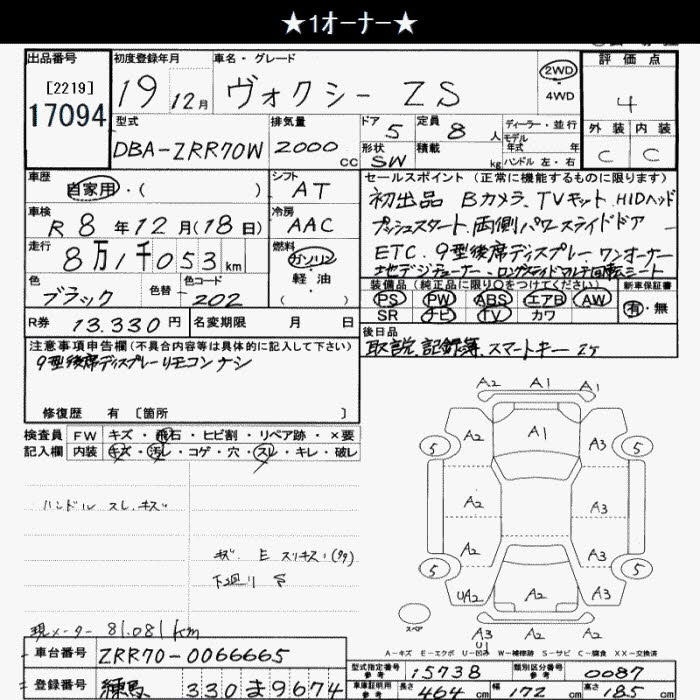 ★1オーナー★
出品番号
[2219]
17094
初度登録年月
19 12月
車名・グレード
ヴォクシー ZS
2WD
4WD
評価点
4
外装 内装
C C
型式
DBA-ZRR70W
排気量
2000 cc
ドア 5
定員 8 人
形状 SW
積載 kg
ディーラー・並行
モデル年式 年
ハンドル 左・右
車歴
自家用・( )
シフト
AT
車検
R 8 年 12 月(18 日)
冷房
AAC
走行
8万1千053 km
燃料
ガソリン
軽油
( )
色
ブラック
色替
色コード
202
R券 13.330 円
名変期限 月 日
セールスポイント(正常に機能するものに限ります)
初出品 Bカメラ、TVキット、HIDヘッド
プッシュスタート、両側パワースライドドア
ETC、9型後席ディスプレー、ワンオーナー
地デジチューナー、ロングスライドマルチ回転シート
装備品(純正品に限り○をつけてください)
新車保証書
PS PW ABS エアB AW
SR ナビ TV カワ
有・無
後日品
取説、記録簿、スマートキー 2ケ
注意事項申告欄(不具合内容等は具体的に記入して下さい)
9型後席ディスプレーリモコンナシ
修復歴 有 〔箇所 〕
検査員記入欄
FW キズ・飛石・ヒビ割・リペア跡・×要
内装 キズ・汚レ・コゲ・穴・スレ・キレ・破レ
ハンドル スレ、キズ
下廻り S
現メーター 81.081km
車台番号 ZRR70-0066665
登録番号 練馬 330 ま 9674
A2 A1 A1
A2 A1 A3
5 5
A2 A3
A2 A3
5 5
UA2 A2 A2
スペア
A3 A2 A2
U1
A-キズ E-エクボ U-凹み W-補修跡 S-サビ C-腐食 XX-交換済
型式指定番号 参考 15738
類別区分番号 参考 0087
車庫証明用 参考 長さ 464 cm 幅 172 cm 高さ 185 cm